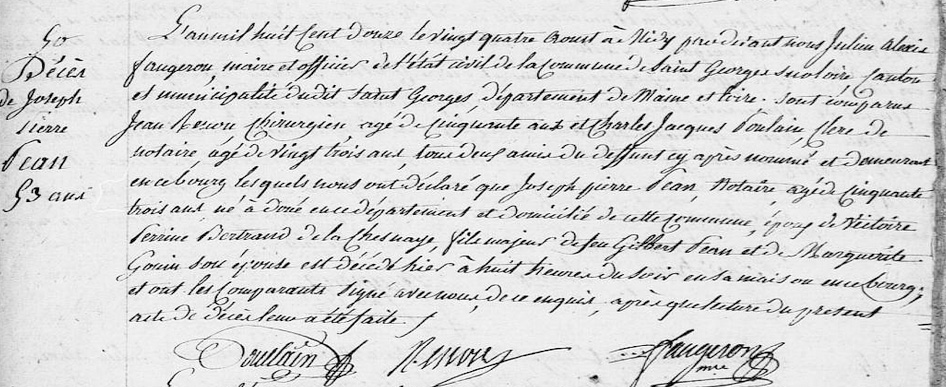 50
Décès
de Joseph
Pierre
Pean
53 ans
L'an mil huit Cent douze le vingt quatre aoust à Midy pardevant nous Julien alexis
faugeron, maire et officier de l'état civil de la commune de Saint Georges sur loire, Canton
et municipalité dudit Saint Georges, département de Maine et loire. sont comparus
Jean Renou Chirurgien agé de Cinquante ans et Charles Jacques Poulain, Clerc de
notaire, agé de vingt trois ans, tous deux amis du deffunt cy après nommé et demeurant
en ce bourg lesquels nous ont déclaré que Joseph pierre Pean, Notaire, agé de Cinquante
trois ans né à doué en ce département et domicilié de cette commune, époux de Victoire
Perrine Bertrand de la Chesnaye, fils majeur de feu Gilbert Pean et de Marguerite
Gouin son épouse est décédé hier à huit heures du soir en sa maison en ce bourg;
et ont les Comparants Signé avec nous, de ce enquis, après que lecture du présent
acte de décès leur a été faite /
Poullain Renou faugeron
mre